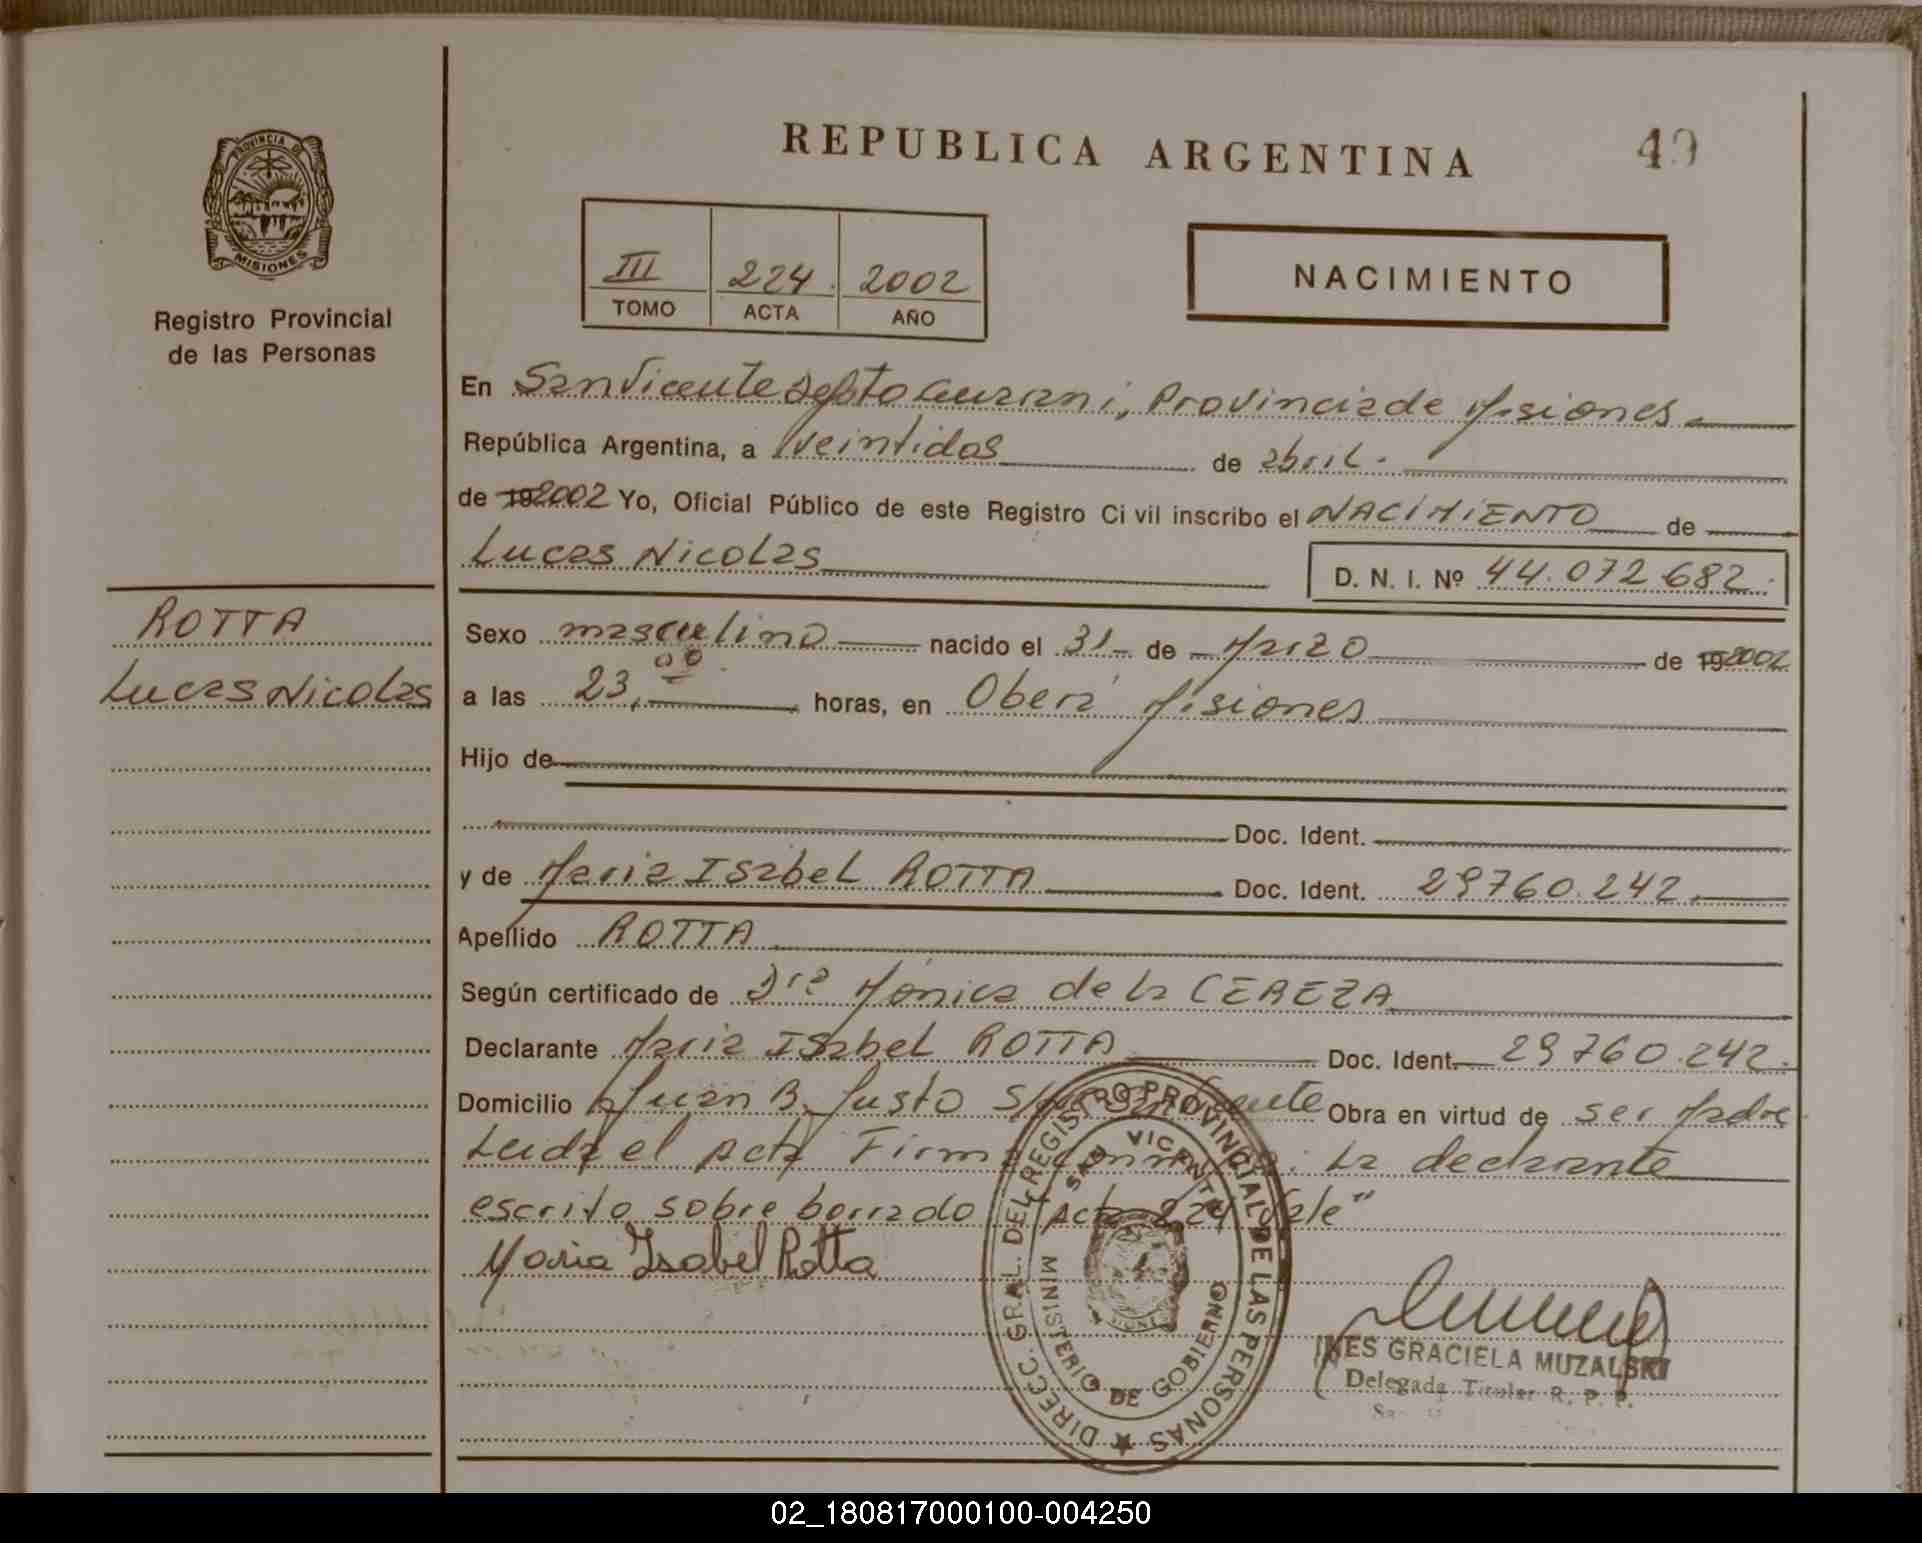 REPUBLICA ARGENTINA
49
PROVINCIA DE
MISIONES
Registro Provincial
de las Personas
III 224. 2002
TOMO ACTA AÑO
NACIMIENTO
En San Vicente Depto Guarani, Provincia de Misiones
República Argentina, a Veintidos de abril.
de 192002 Yo, Oficial Público de este Registro Ci vil inscribo el NACIMIENTO de
Lucas Nicolas
D. N. I. Nº 44.072.682.
ROTTA
Lucas Nicolas
Sexo masculino nacido el 31 de Marzo de 192002
a las 23,00 horas, en Oberá Misiones
Hijo de
Doc. Ident.
y de Maria Isabel ROTTA Doc. Ident. 29760.242.
Apellido ROTTA
Según certificado de Dra Mónica de la CEREZA
Declarante Maria Isabel ROTTA Doc. Ident. 29760.242.
Domicilio Juan B. Justo S/N San Vicente Obra en virtud de ser Madre
Leida el acta Firma la declarante
escrito sobre borrado "Acta 224 Vale"
Maria Isabel Rotta
DIRECC. GRAL. DEL REGISTRO PROVINCIAL DE LAS PERSONAS
SAN VICENTE
MINISTERIO DE GOBIERNO
INES GRACIELA MUZALSKI
Delegada Titular R. P. P.
02_180817000100-004250